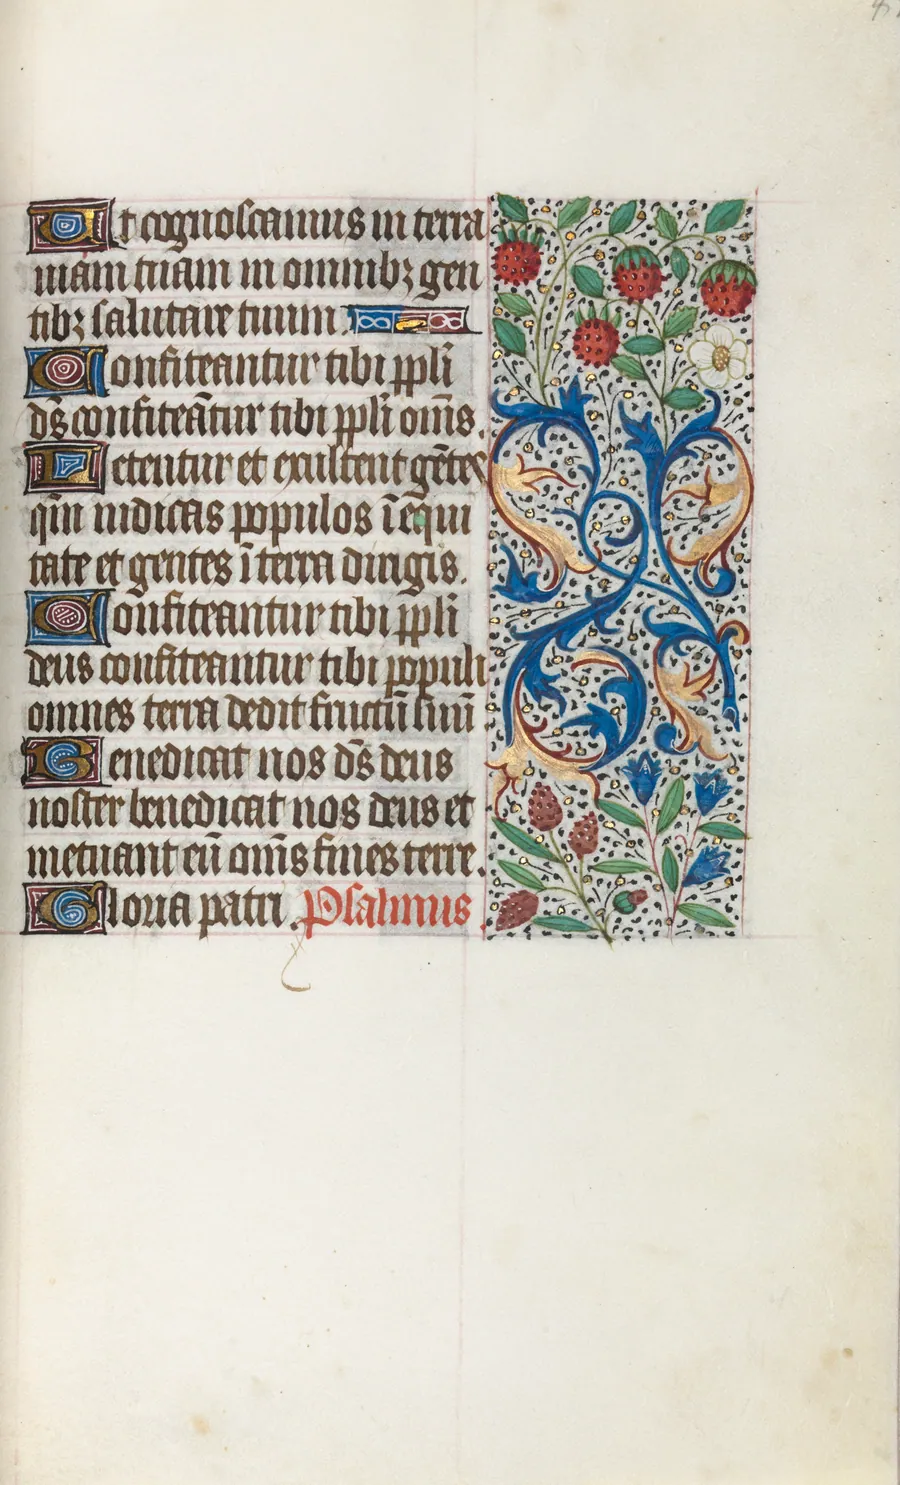 Ut cognoscamus in terra
uiam tuam in omnibꝫ gen
tibꝫ salutare tuum.
Confiteantur tibi ppl̄i
ds̄ confiteãtur tibi ppl̄i om̄s.
Letentur et exultent gẽtes
qm̄ iudicas populos ĩ equi
tate et gentes ĩ terra dirigis.
Confiteantur tibi ppl̄i
deus confiteantur tibi populi
omnes terra dedit fructũ suũ
Benedicat nos ds̄ deus
noster benedicat nos deus et
metuant eũ om̄s fines terre.
Gloria patri. Psalmus